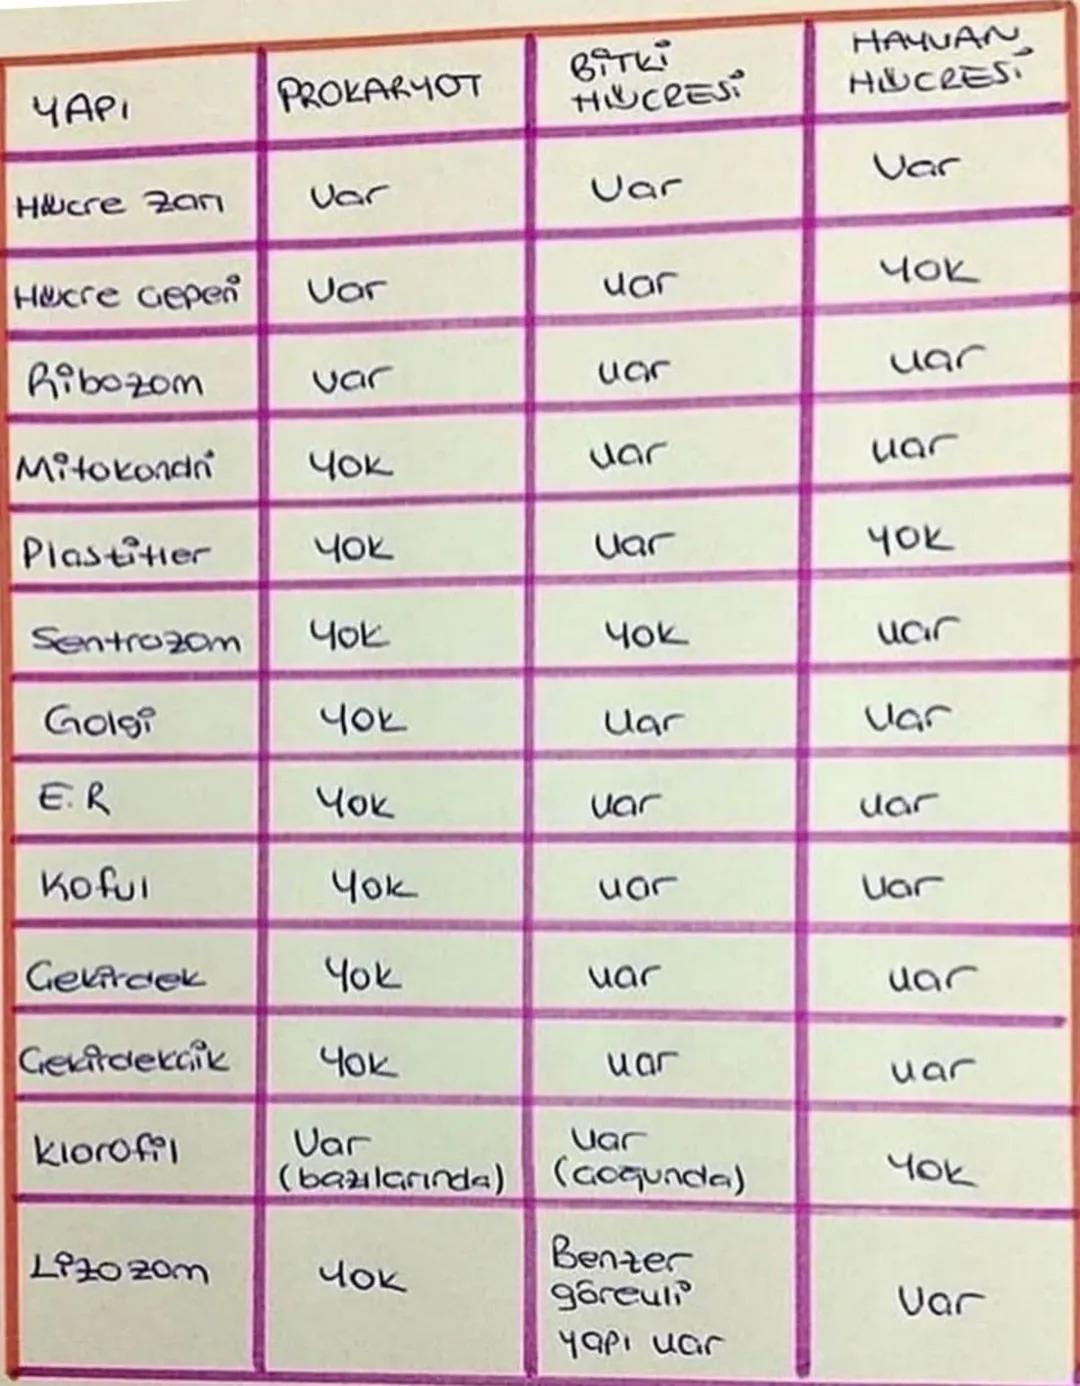 YAPI PROKARYOT BİTKİ HÜCRESİ HAYVAN HÜCRESİ
Hücre zarı Var Var Var
Hücre Çeperi Var var YOK
Ribozom var var var
Mitokondri YOK var var
Plastitler YOK var YOK
Sentrozom YOK YOK var
Golgi YOK var var
E.R YOK var var
Koful YOK var var
Çekirdek YOK var var
Çekirdekçik YOK var var
Klorofil Var (bazılarında) var (çoğunda) YOK
Lizozom YOK Benzer görevli yapı var Var